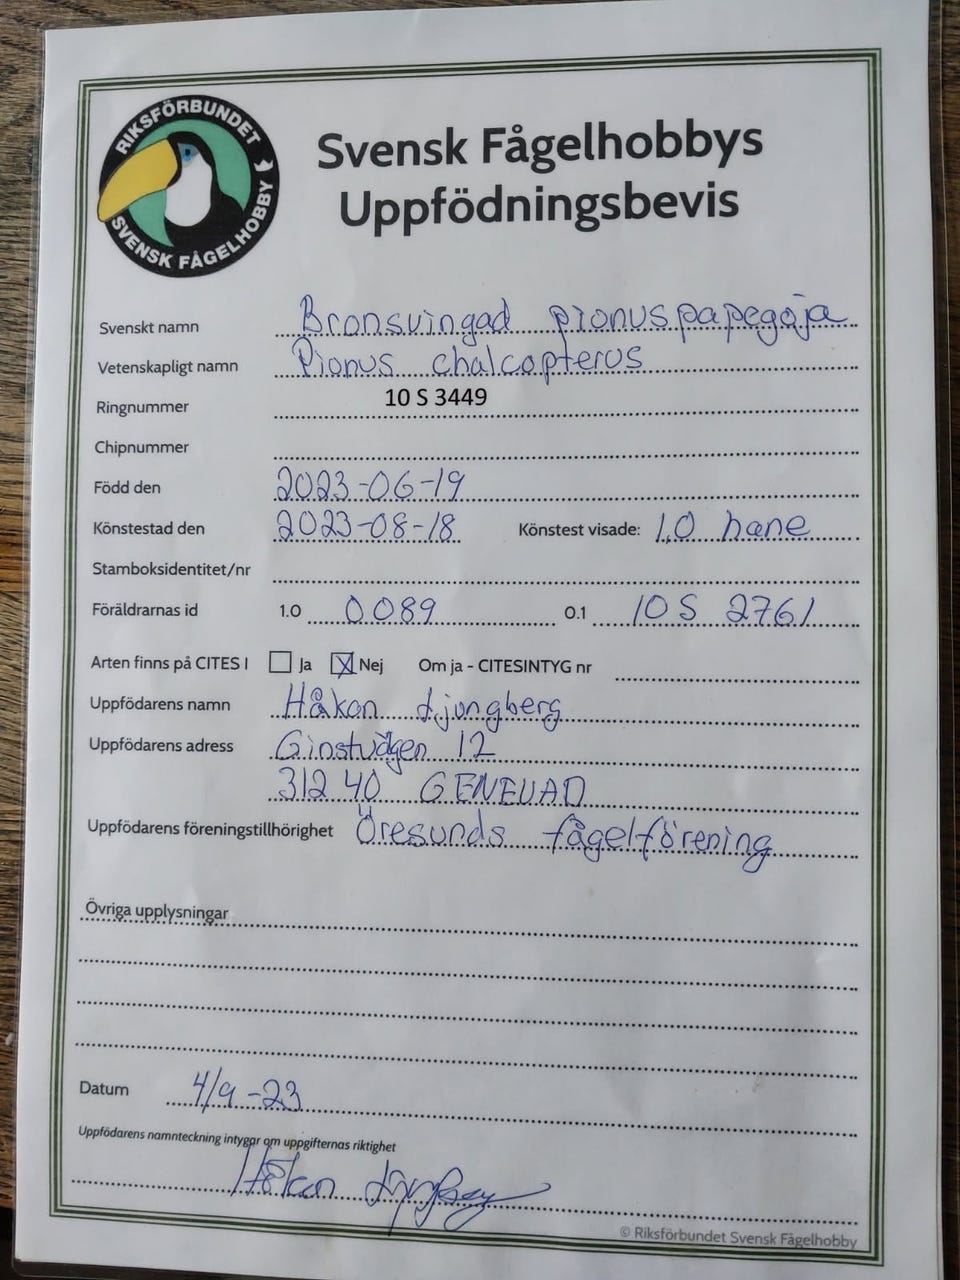 RIKSFÖRBUNDET
SVENSK FÅGELHOBBY
Svensk Fågelhobbys
Uppfödningsbevis
Svenskt namn Bronsvingad pionuspapegoja
Vetenskapligt namn Pionus chalcopterus
Ringnummer 10 S 3449
Chipnummer
Född den 2023-06-19
Könstestad den 2023-08-18 Könstest visade: 1,0 hane
Stamboksidentitet/nr
Föräldrarnas id 1.0 0089 0.1 10 S 2761
Arten finns på CITES I Ja Nej Om ja - CITESINTYG nr
Uppfödarens namn Håkan Ljungberg
Uppfödarens adress Ginstvägen 12
312 40 GENEVAD
Uppfödarens föreningstillhörighet Öresunds fågelförening
Övriga upplysningar
Datum 4/9 -23
Uppfödarens namnteckning intygar om uppgifternas riktighet
Håkan Ljungberg
© Riksförbundet Svensk Fågelhobby